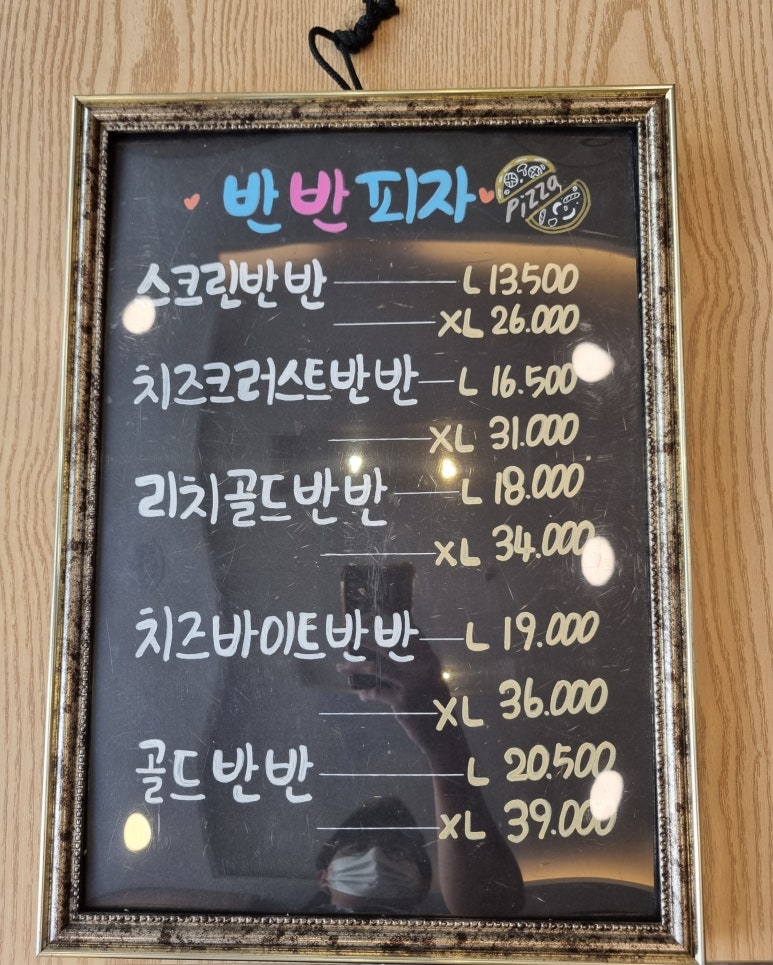 반반피자 Pizza
스크린반반 L 13.500
XL 26.000
치즈크러스트반반 L 16.500
XL 31.000
리치골드반반 L 18.000
XL 34.000
치즈바이트반반 L 19.000
XL 36.000
골드반반 L 20.500
XL 39.000